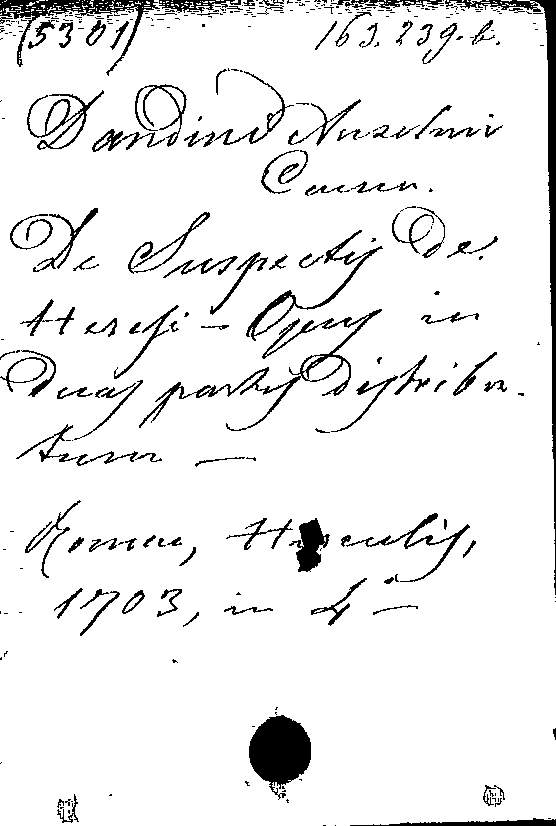 (5301) 163.239.b.
Dandini Anselmi
Caesen.
De Suspectis de
Heresi - Opus in
Duas partes Distribu-
tum —
Romae, Herculis,
1703, in 4° —